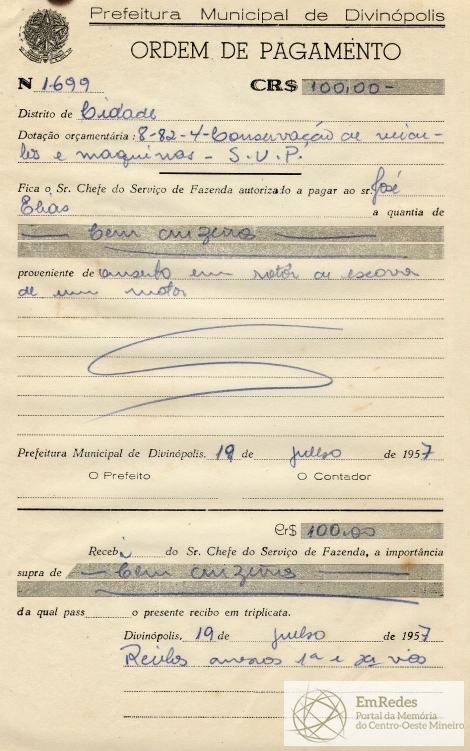 Prefeitura Municipal de Divinópolis
ORDEM DE PAGAMENTO
N 1.699 CR$ 100,00-
Distrito de Cidade
Dotação orçamentária: 8-82-4-Conservação de veicu-
los e maquinas - S.V.P.
Fica o Sr. Chefe do Serviço de Fazenda autorizado a pagar ao sr. José
Elias a quantia de
Cem cruzeiros
proveniente de conserto em rotor de escova
de um motor
Prefeitura Municipal de Divinópolis, 19 de julho de 1957
O Prefeito O Contador
Cr$ 100,00
Recebi do Sr. Chefe do Serviço de Fazenda, a importância
supra de Cem cruzeiros
da qual pass o presente recibo em triplicata.
Divinópolis, 19 de julho de 1957
Recibos anexos 1ª e vias
EmRedes
Portal da Memória
do Centro-Oeste Mineiro